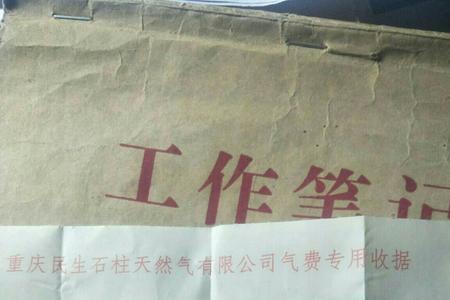 工作笔记
重庆民生石柱天然气有限公司气费专用收据